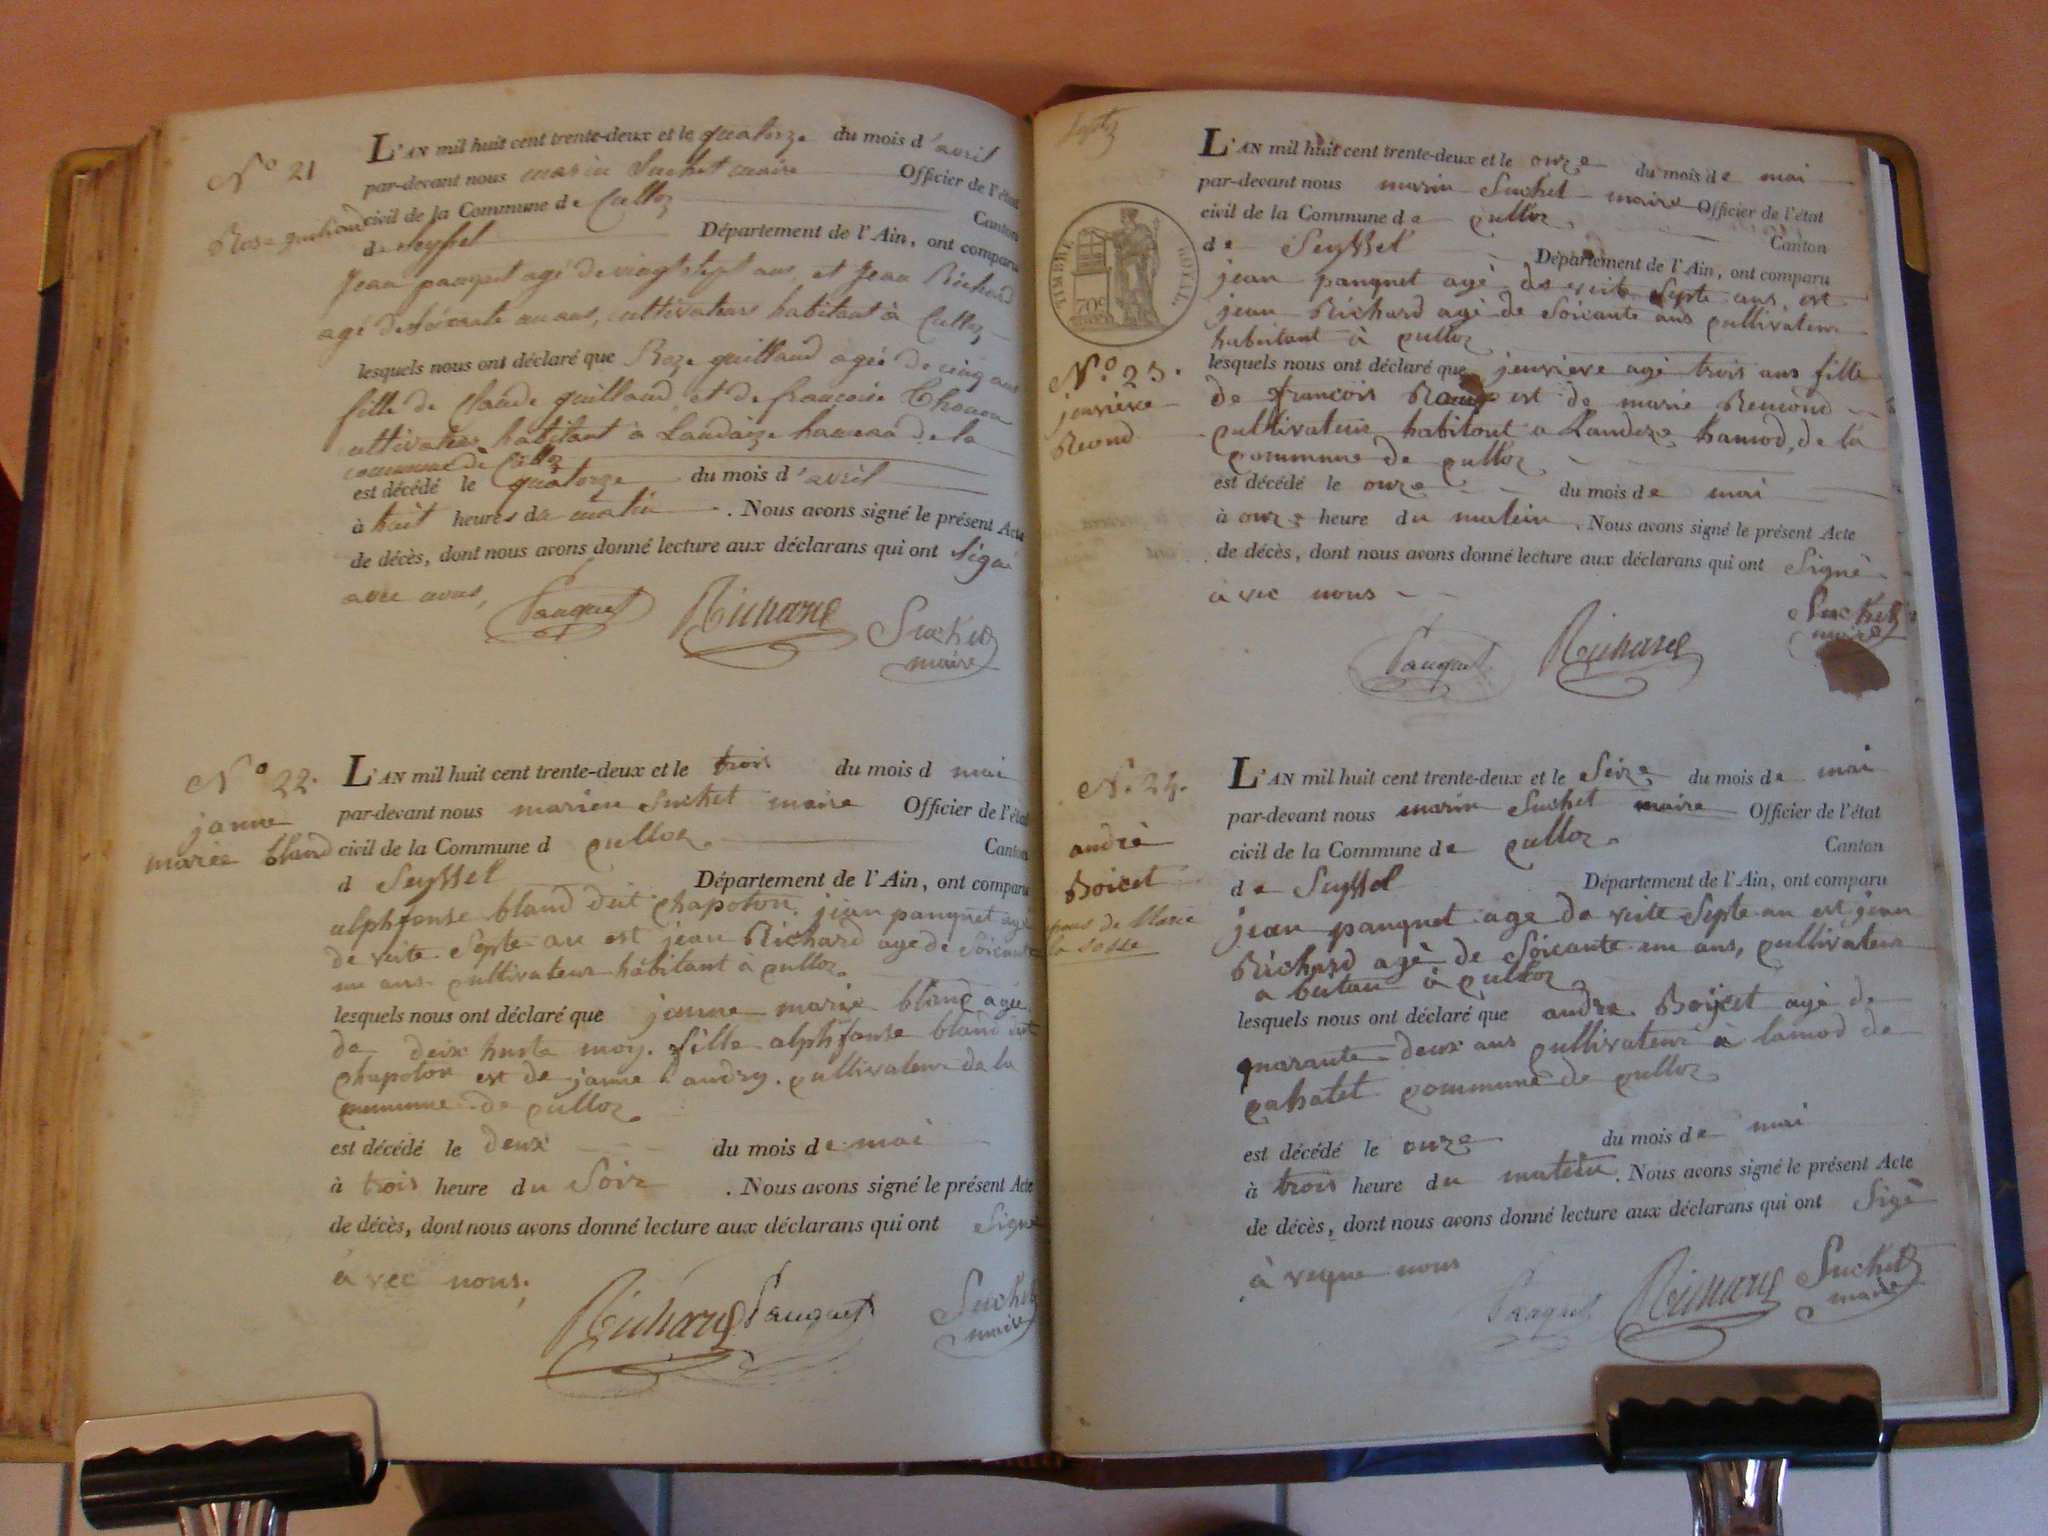 N° 21
Rose guillaud
L'AN mil huit cent trente-deux et le quatorze du mois d'avril
par-devant nous marin Suchet maire Officier de l'état
civil de la Commune de Culloz Canton
de Seyssel Département de l'Ain, ont comparu
Jean pauquet agé de vingt sept ans, et Jean Richard
agé de soixante un ans, cultivateurs habitant à Culloz
lesquels nous ont déclaré que Roze guillaud agée de cinq ans
fille de Claude guillaud, et de francoise
cultivateurs habitant à Landaize hameau de la
commune de Culloz
est décédé le quatorze du mois d'avril
à huit heures du matin. Nous avons signé le présent Acte
de décès, dont nous avons donné lecture aux déclarans qui ont signé
avec nous,
Pauquet Richard Suchet
maire
N° 22.
janne
marie bland
L'AN mil huit cent trente-deux et le trois du mois d mai
par-devant nous marien Suchet maire Officier de l'état
civil de la Commune d culloz Canton
d Seyssel Département de l'Ain, ont comparu
alphfonse bland dit chapoton. jean pauquet agé
de veite septe an est jean Richard age de soicante
un ans cultivateur habitant à culloz
lesquels nous ont déclaré que janne marie bland agée
de deix huite moy. fille alphfonse bland dit
chapoton est de janne andry. cultivateur de la
commune de culloz
est décédé le deux du mois de mai
à trois heure du Soir. Nous avons signé le présent Acte
de décès, dont nous avons donné lecture aux déclarans qui ont signé
à vec nous,
Richard Pauquet Suchet
maire
Septz
TIMBRE ROYAL
70c
N° 23.
jenvieve
Reond
L'AN mil huit cent trente-deux et le onze du mois de mai
par-devant nous marin Suchet maire Officier de l'état
civil de la Commune de culloz Canton
de Seyssel Département de l'Ain, ont comparu
jean pauquet agé de veite septe ans est
jean Richard agé de soicante ans cultivateur
habitant à culloz
lesquels nous ont déclaré que jenvieve agé trois ans fille
de francois est de marie Remond
cultivateur habitont a Landeze hamod, de la
commune de culloz
est décédé le onze du mois de mai
à onze heure du matein. Nous avons signé le présent Acte
de décès, dont nous avons donné lecture aux déclarans qui ont signé
à vec nous
Pauquet Richard Suchet
maire
N° 24.
andré
Boicet
epous de Marie
la sasse
L'AN mil huit cent trente-deux et le seize du mois de mai
par-devant nous marin Suchet maire Officier de l'état
civil de la Commune de culloz Canton
de Seyssel Département de l'Ain, ont comparu
jean pauquet age de veite septe an est jean
Richard agé de soicante un ans, cultivateur
a bitan à culloz
lesquels nous ont déclaré que andre Boicet agé de
quarante deux ans cultivateur à lamod de
cahatet commune de culloz
est décédé le onze du mois de mai
à trois heure du matein. Nous avons signé le présent Acte
de décès, dont nous avons donné lecture aux déclarans qui ont sigé
à veque nous
Pauquet Richard Suchet
maire